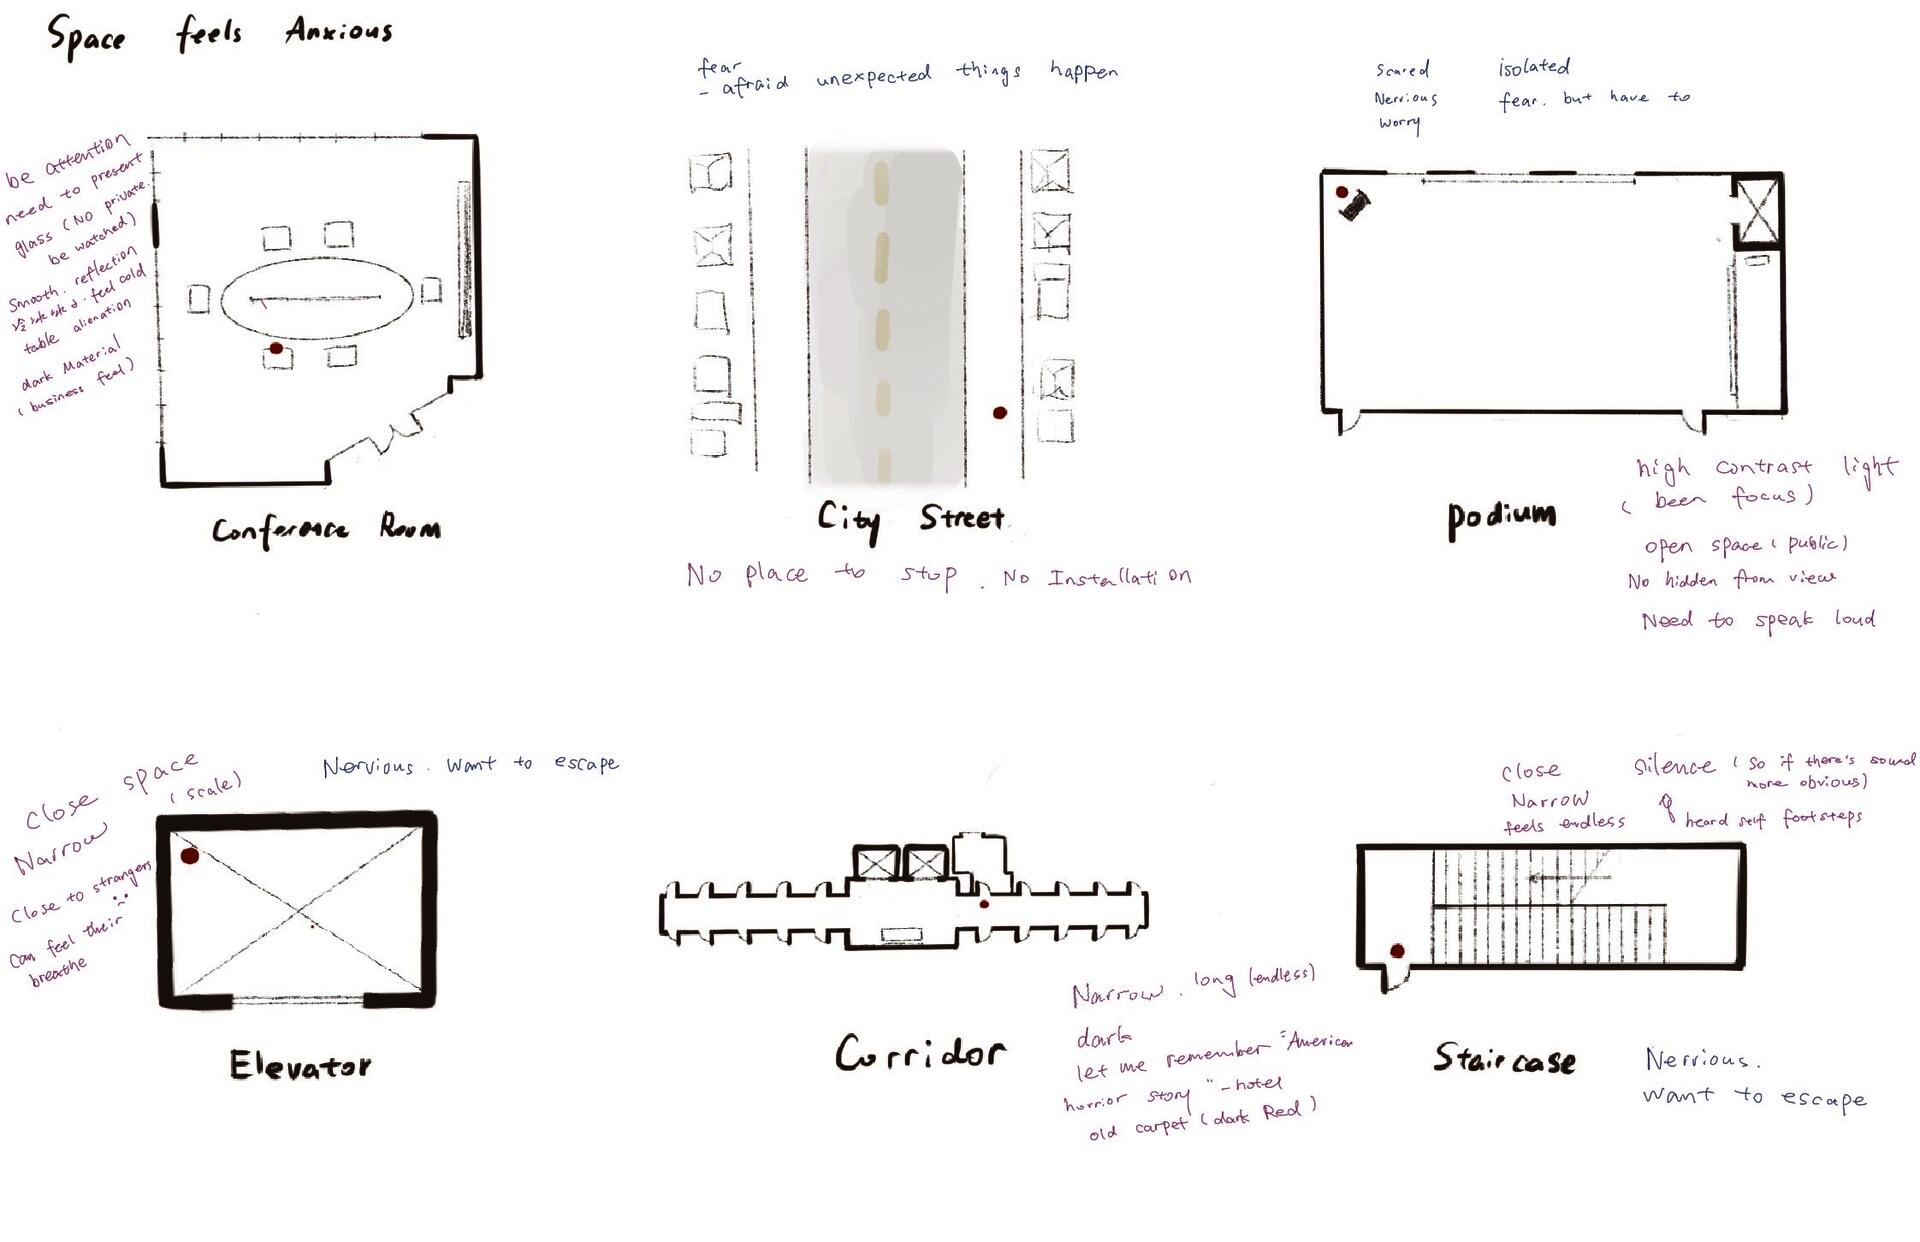 Space feels Anxious
be attention
need to present
glass (No private.
be watched)
Smooth. reflection
feel cold
table alienation
dark Material
(business feel)
Conference Room
fear
- afraid unexpected things happen
City Street
No place to stop. No Installation
Scared
Nervious
Worry
isolated
fear. but have to
podium
high contrast light
(been focus)
open space (public)
No hidden from view
Need to speak loud
Close space
(scale)
Narrow
Close to strangers
Can feel their
breathe
Nervious. Want to escape
Elevator
Corridor
Narrow. long (endless)
dark
let me remember "American
horrior story" - hotel
old carpet (dark Red)
Close
Narrow
feels endless
Silence (so if there's sound
more obvious)
heard self footsteps
Staircase
Nervious.
Want to escape